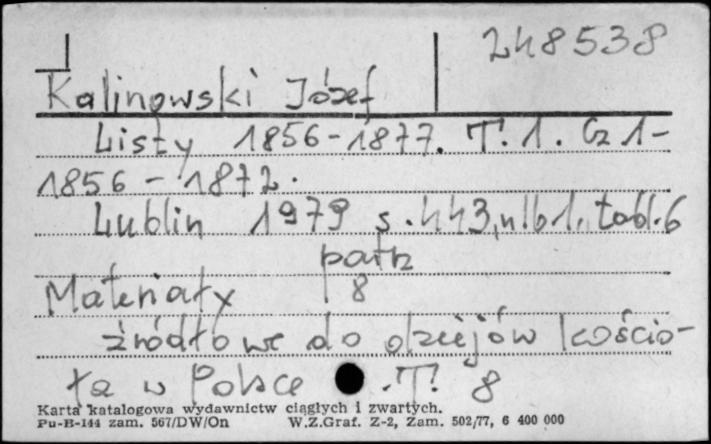 248538
Kalinowski Józef
Listy 1856-1877. T. 1. Cz 1-
1856 - 1872.
Lublin 1979 s. 443, nlb 1, tabl. 6
patrz
Materiały 8
źródłowe do dziejów kościo-
ła w Polsce . T. 8
Karta katalogowa wydawnictw ciągłych i zwartych.
Pu-B-144 zam. 567/DW/On W.Z.Graf. Z-2, Zam. 502/77, 6 400 000